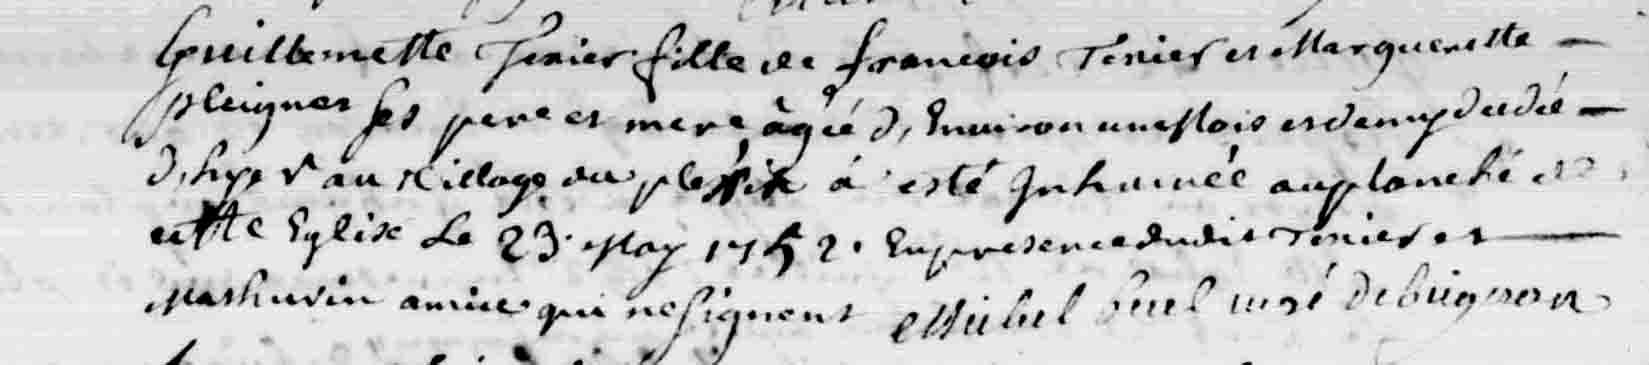 Guillemette Texier fille de francois Texier et Marguerette
pleignet ses pere et mere, âgéé d, Environ un Mois et demy decedéé
d,hyer au Village du plessix á esté Inhumée au planché de
cette Eglise Le 23. May 1752. En presence dudit Texier et
Mathurin amice qui ne signent Michel buel